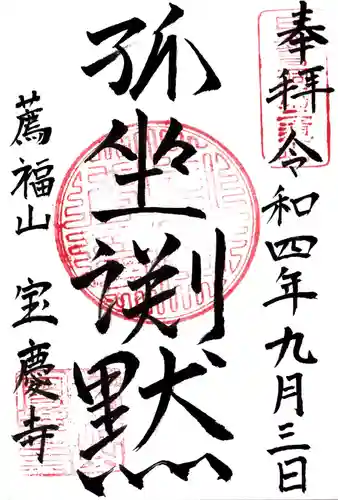 奉拝 令和四年九月三日
孤坐渕黙
薦福山 宝慶寺